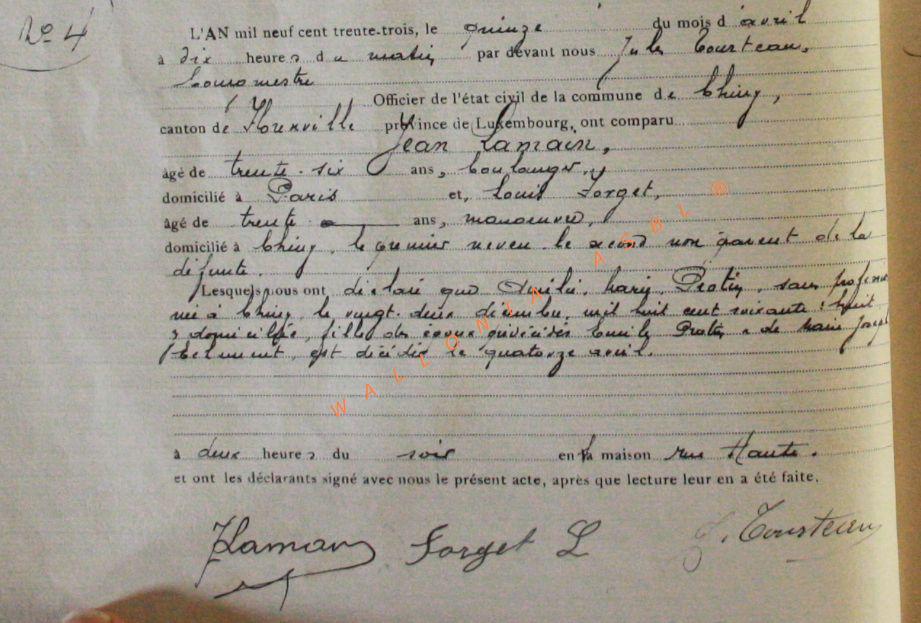 No 4
L'AN mil neuf cent trente-trois, le quinze du mois d'avril
à dix heures du matin par devant nous Jules Tourteau,
bourgmestre
Officier de l'état civil de la commune de Chiny,
canton de Florenville province de Luxembourg, ont comparu
Jean Lamain,
âgé de trente-six ans, boulanger,
domicilié à Paris et, Louis Forget,
âgé de trente ans, manoeuvre,
domicilié à Chiny, le premier neveu le second non parent de la
défunte.
Lesquels nous ont déclaré que Marie Protin, sans profession
née à Chiny le vingt-deux décembre mil huit cent soixante huit
y domiciliée, fille des époux prédécédés Protin & de Marie Joseph
est décédée le quatorze avril.
à deux heures du soir en la maison rue Haute.
et ont les déclarants signé avec nous le présent acte, après que lecture leur en a été faite.
Forget L
WALLONIA ASBL ®